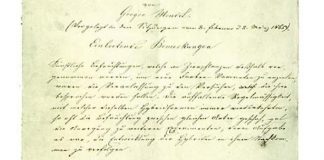 von
Gregor Mendel.
(Vorgelegt in den Sitzungen vom 8. Februar u. 8. März 1865)
Einleitende Bemerkungen
Künstliche Befruchtungen, welche an Zierpflanzen desshalb vor-
genommen wurden, um neue Farben-Varianten zu erzielen,
waren die Veranlassung zu den Versuchen, welche hier
besprochen werden sollen. Die auffallende Regelmässigkeit,
mit welcher dieselben Hybridformen immer wiederkehrten,
so oft die Befruchtung zwischen gleichen Arten geschah, gab
die Anregung zu weiteren Experimenten, deren Aufgabe
es war, die Entwicklung der Hybriden in ihren Nachkom-
men zu verfolgen.